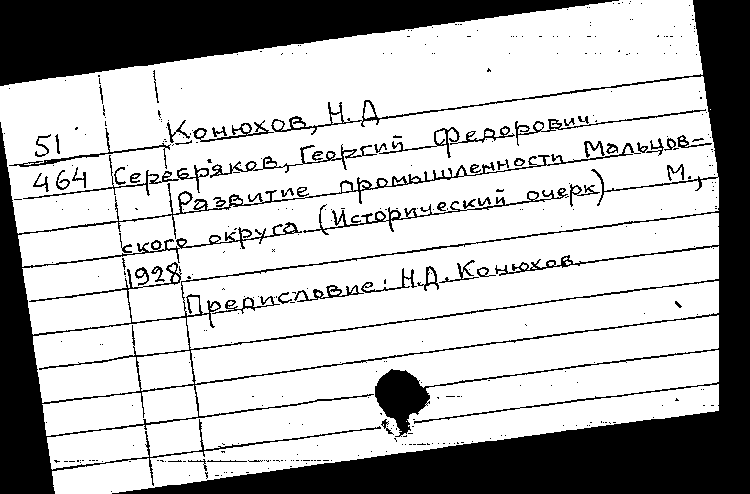 Конюхов, Н. Д
51
464
Серебряков, Георгий Федорович.
Развитие промышленности Мальцов-
ского округа (Исторический очерк) М.,
1928.
Предисловие: Н.Д. Конюхов.